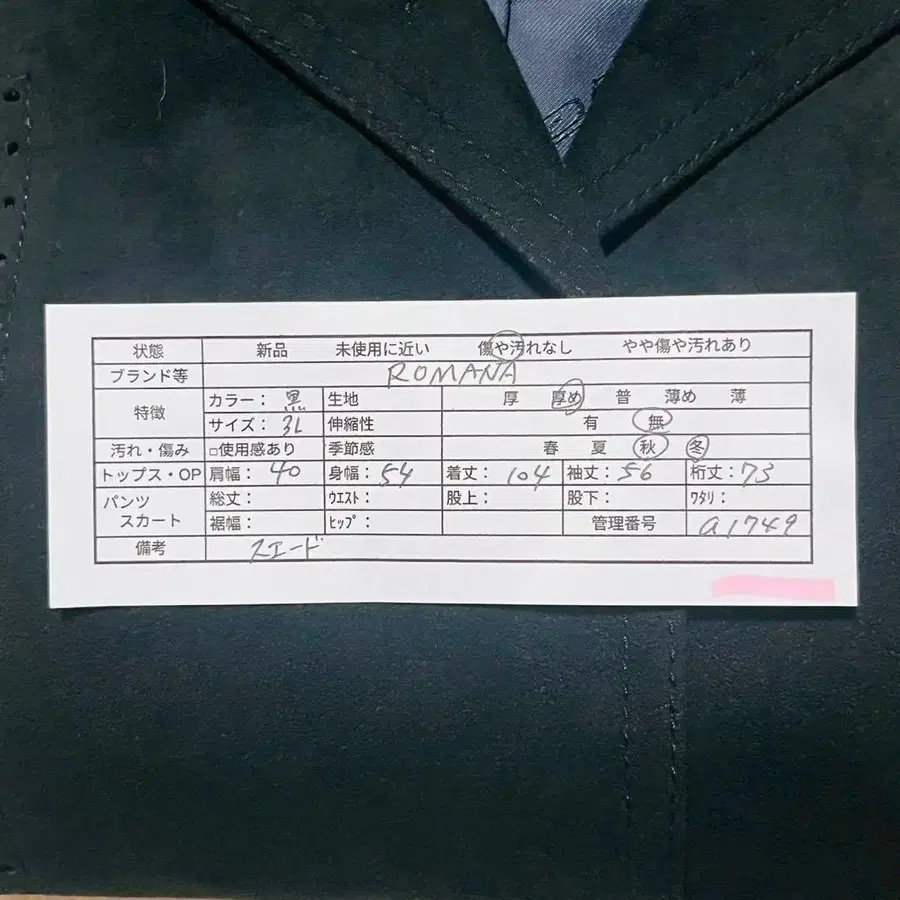 状態 新品 未使用に近い 傷や汚れなし やや傷や汚れあり
ブランド等 ROMANA
特徴 カラー：黒 生地 厚 厚め 普 薄め 薄
サイズ：3L 伸縮性 有 無
汚れ・傷み □使用感あり 季節感 春 夏 秋 冬
トップス・OP 肩幅：40 身幅：54 着丈：104 袖丈：56 裄丈：73
パンツ 総丈： ｳｴｽﾄ： 股上： 股下： ﾜﾀﾘ：
スカート 裾幅： ﾋｯﾌﾟ： 管理番号 a1749
備考 スエード